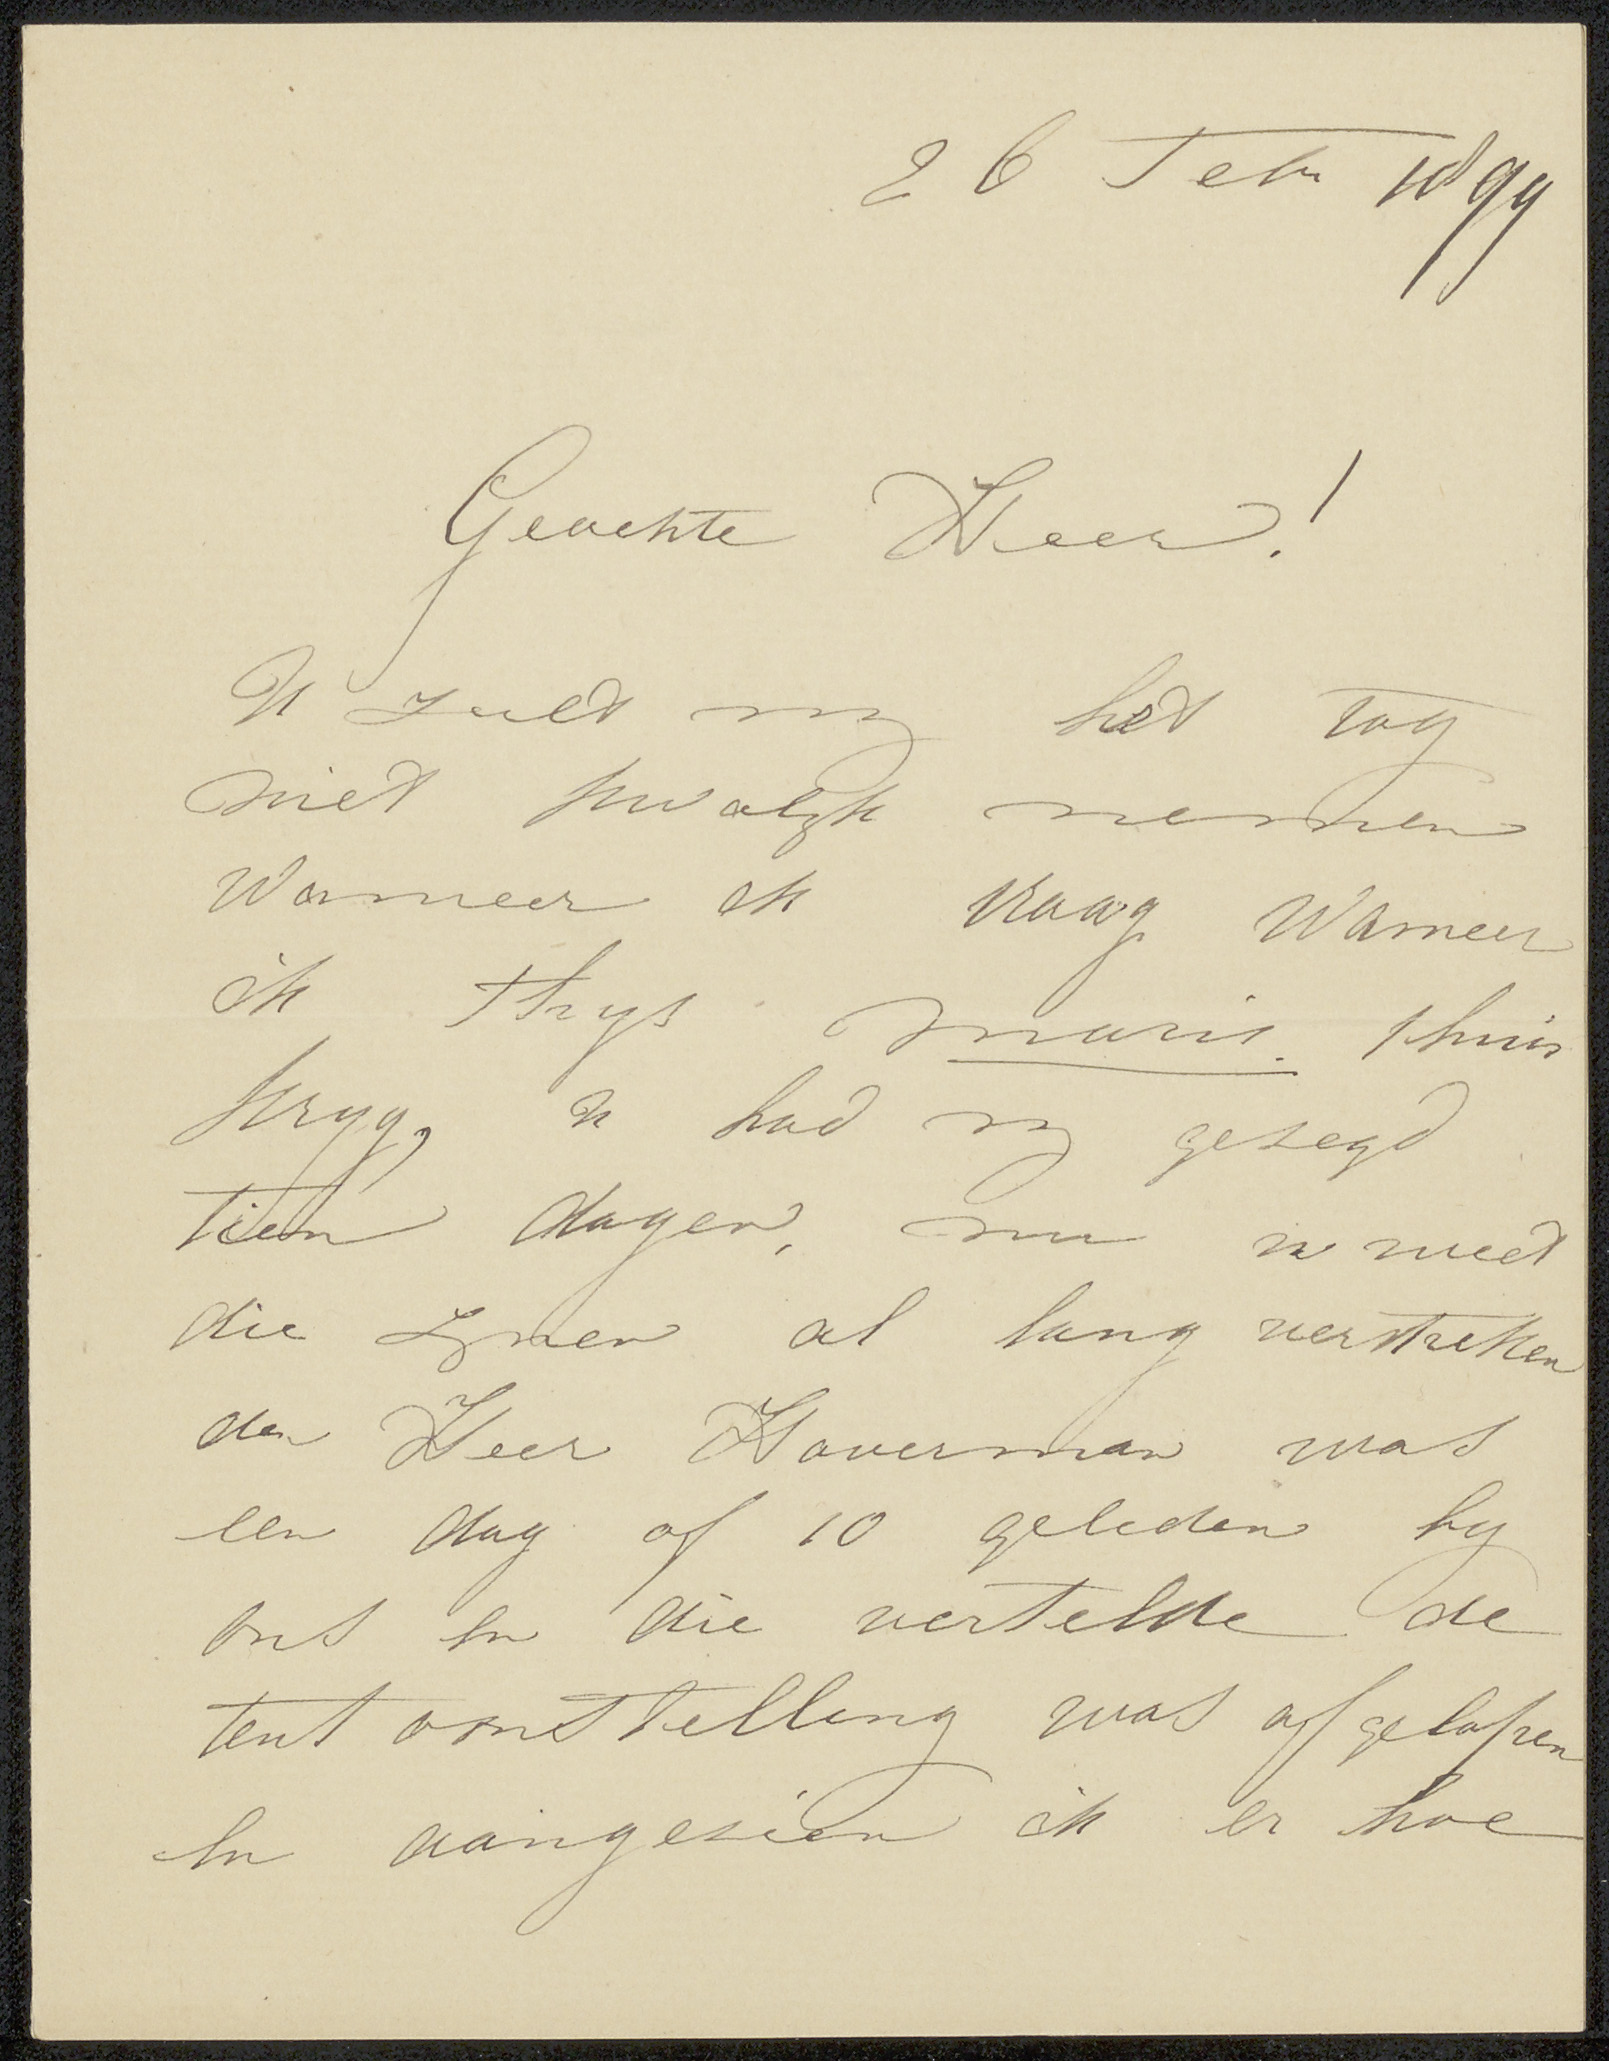 26 Feb 1899
Geachte Heer!
U zult my het tog
niet kwalyk nemen
Wanneer ik vraag Wanneer
ik Thys Maris thuis
kryg, u had my gesegd
tien dagen, nu u weet
die zynen al lang verstreken
den Heer Haverman was
een dag of 10 geleden by
ons en die vertelde de
tentoonstelling was afgelopen
en aangesien ik er hoe